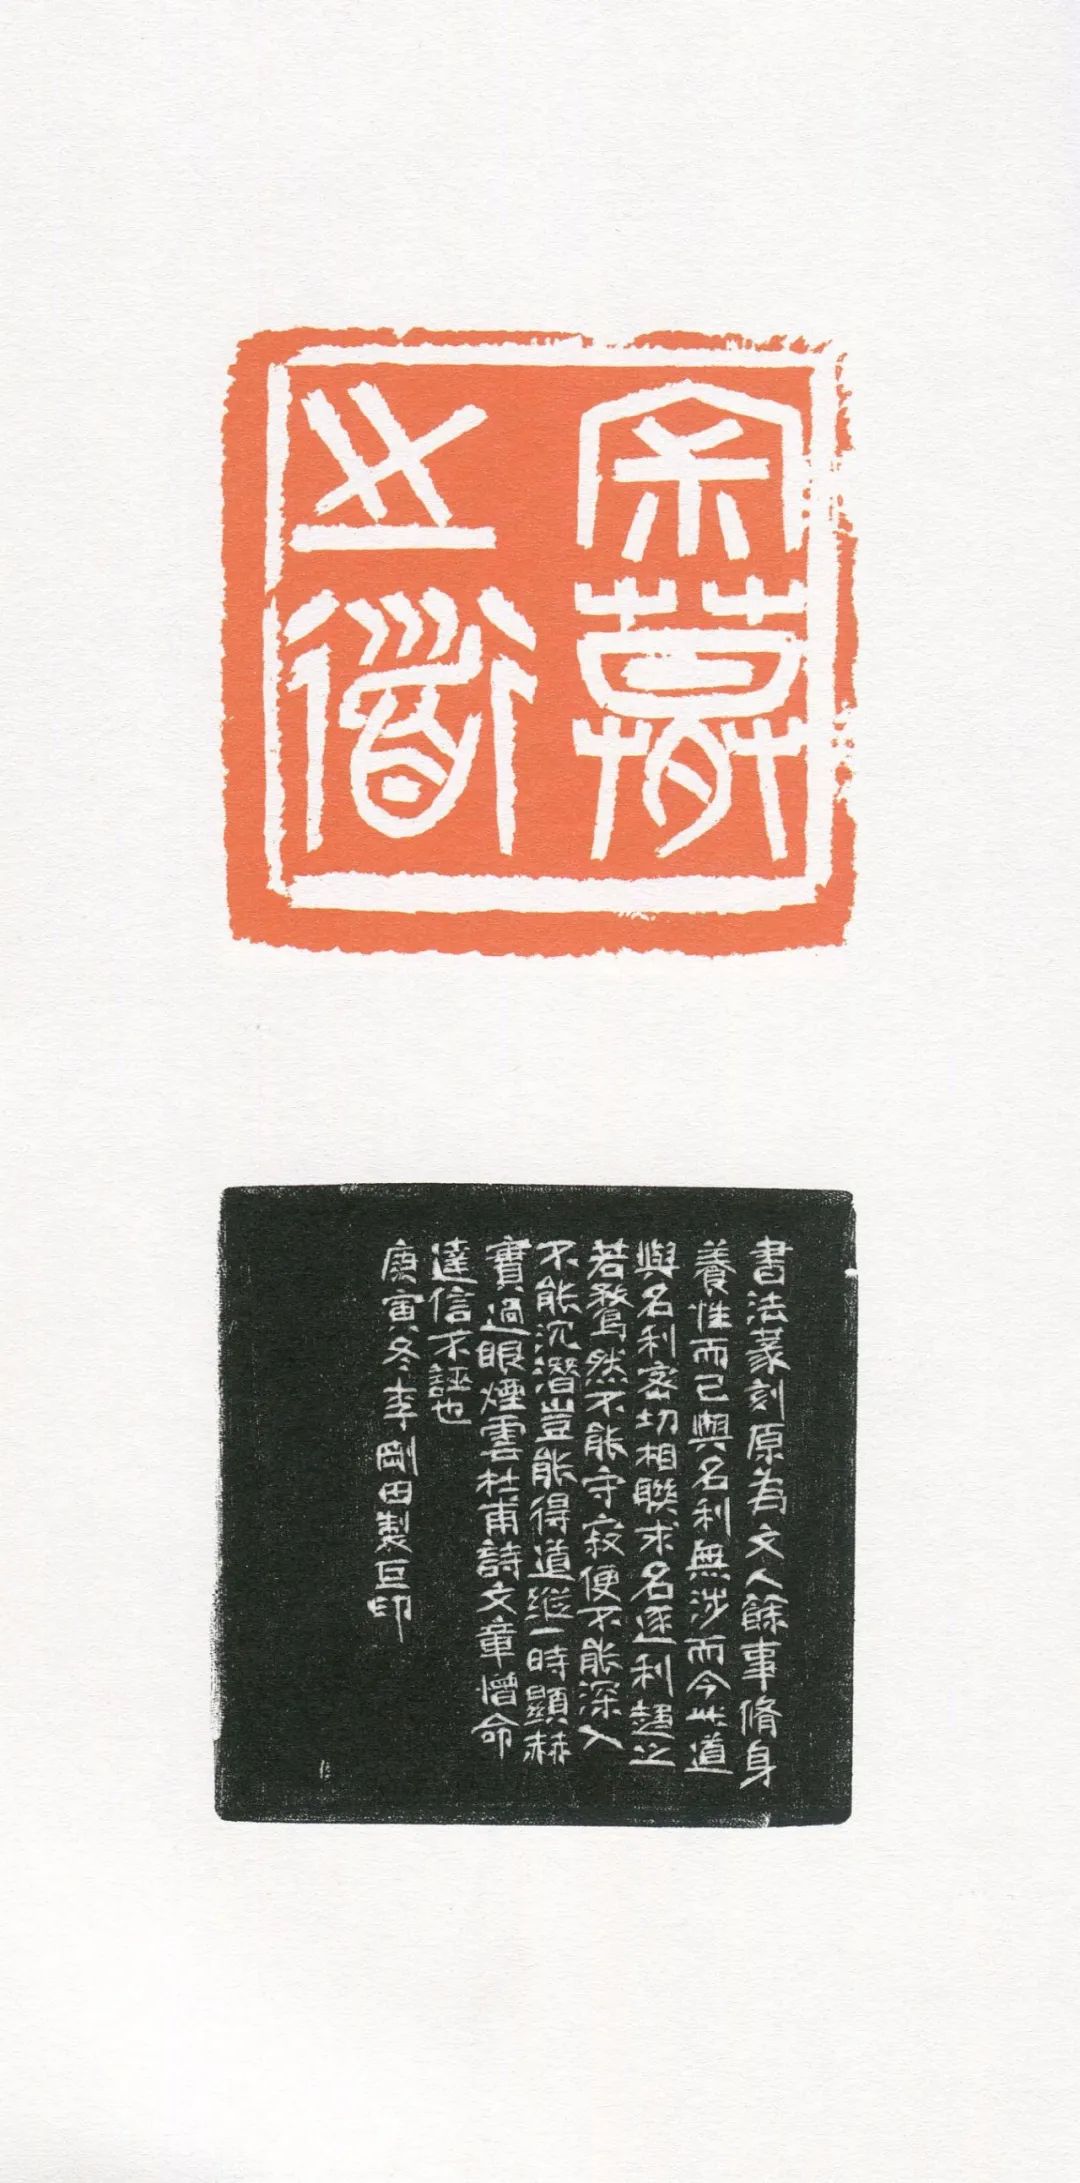 寂寞
之道
書法篆刻原為文人餘事脩身
養性而已與名利無涉而今此道
與名利密切相聯求名逐利趨之
若鶩然不能守寂便不能深入
不能沉潛豈能得道縱一時顯赫
實過眼煙雲杜甫詩文章憎命
達信不誣也
庚寅冬李剛田製巨印